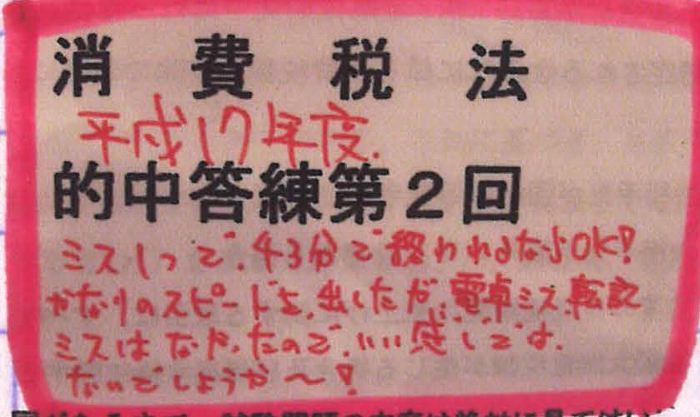 消費税法
平成17年度.
的中答練第2回
ミス1つで、43分で終われるならOK!
かなりのスピードを、出したが、電卓ミス、転記
ミスはなかったので、いい感じです。
なのでしょうか〜!